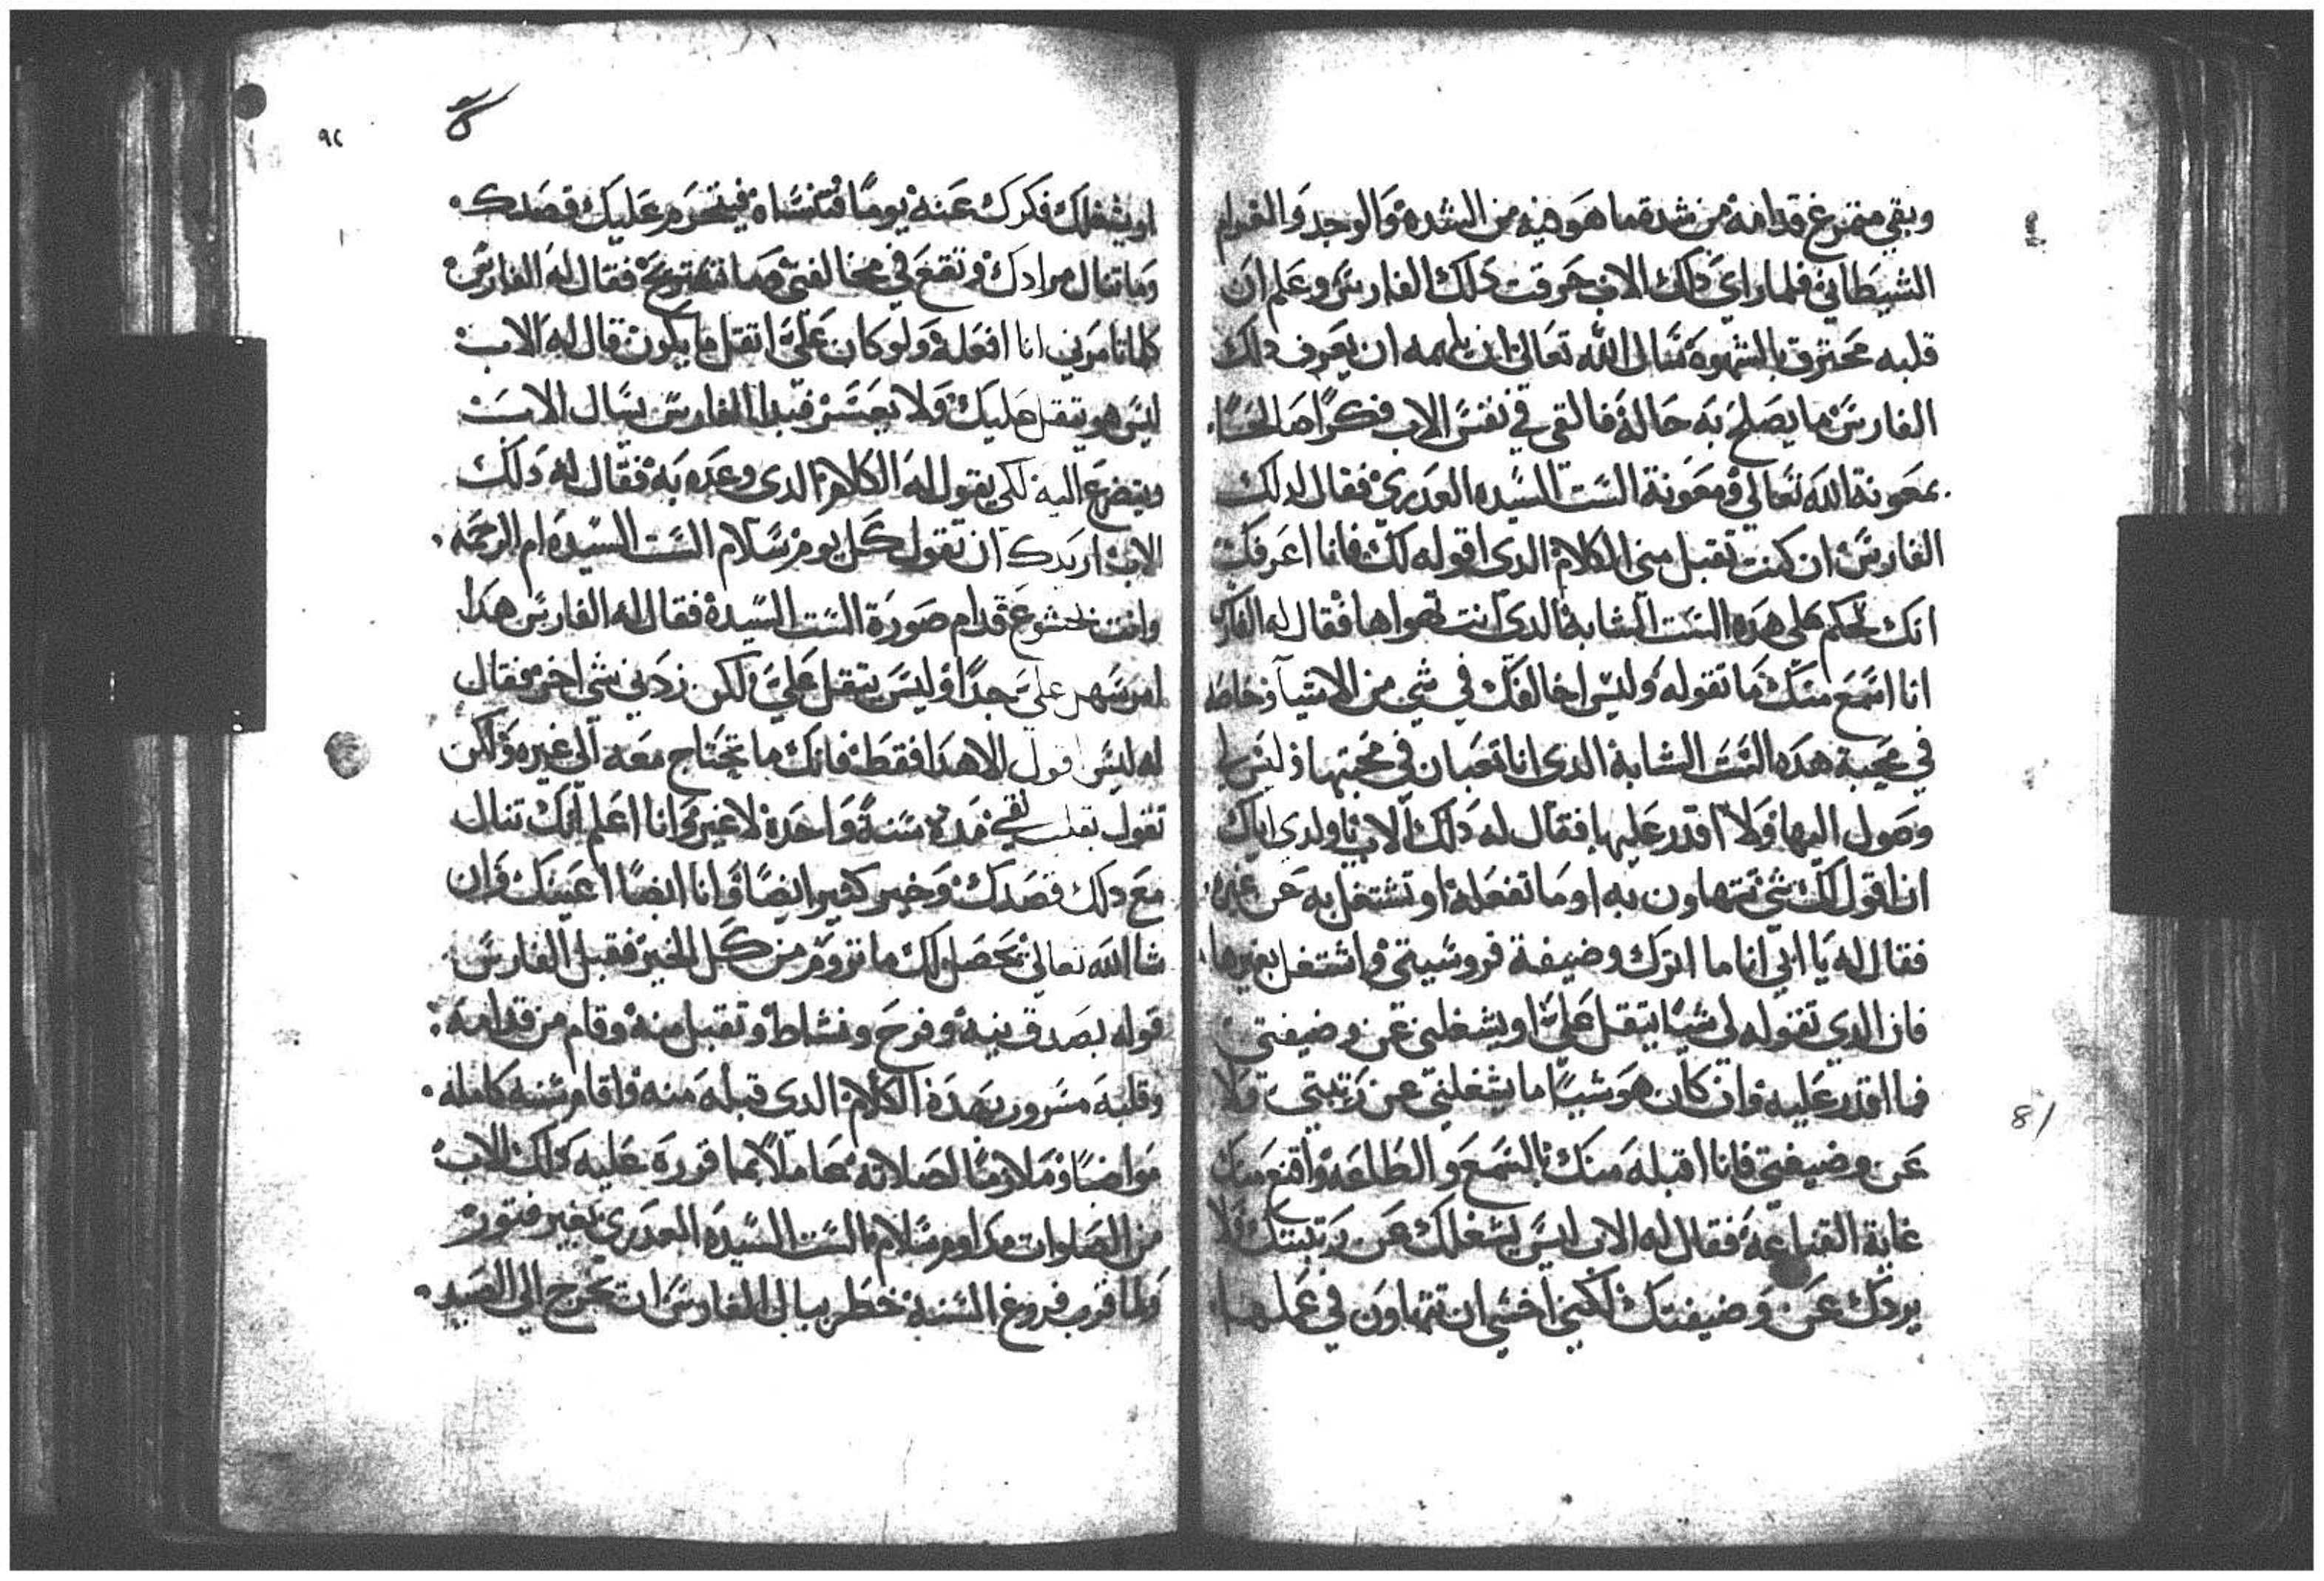 وبقي متمرغ قدامه من شدة ما هو فيه من الشدة والوجد والغرام
الشيطاني فلما راي دلك الاب حرقت دلك الفارس وعلم ان
قلبه محترق بالشهوة سال الله تعالي ان يلهمه ان يعرف دلك
الفارس ما يصلح به حاله فالقي في نفس الاب فكرا صالحا
بمعونة الله تعالي ومعونة الست السيده العدري فقال لدلك
الفارس ان كنت تقبل مني الكلام الدي اقوله لك فانا اعرفك
انك تحكم علي هده الست الشابه الدي انت تهواها فقال له الفارس
انا اسمع منك ما تقوله وليس اخالفك في شي من الاشيا وخاصه
في محبة هده الست الشابة الدي انا تعبان في محبتها وليس لي
وصول اليها ولا اقدر عليها فقال له دلك الاب يا ولدي اياك
ان اقول لك شي تتهاون به او ما تفعله او تشتغل به عن غيره
فقال له يا ابي انا ما اترك وضيفة فروسيتي واشتغل بغيرها
فان الدي تقوله لي شيا يتقل علي او يشغلني عن وضيفتي
فما اقدر عليه وان كان هو شيا ما يشغلني عن رتبتي ولا
عن وضيفتي فانا اقبله منك بالسمع والطاعه واقنع منك
غاية القناعه فقال له الاب ليس يشغلك عن رتبتك ولا
يردك عن وضيفتك لكني اخشي ان تتهاون في عملها
٩٢
او يشغلك فكرك عنه يوما فتنساه فيتحرم عليك قصدك
وما تنال مرادك وتقع في مخالفتي وما تستريح فقال له الفارس
كلما تامرني انا افعله ولو كان علي اتقل ما يكون قال له الاب
ليس هو يتقل عليك ولا يعسر فبدا الفارس يسال الاب
ويتضرع اليه لكي يقول له الكلام الدي وعده به فقال له دلك
الاب اريدك ان تقول كل يوم سلام الست السيده ام الرحمه
وانت بخشوع قدام صورة الست السيدة فقال له الفارس هدا
امر سهل علي جدا وليس يتقل علي ولكن زدني شي اخر فقال
له ليس اقول الا هدا فقط فانك ما تحتاج معه الي غيره ولكن
تقول بقلب نقي مدة سنة واحدة لا غير وانا اعلم انك تنال
مع دلك قصدك وخير كثير ايضا وانا ايضا اعينك وان
شا الله تعالي يحصل لك ما تروم من كل الخير فقبل الفارس
قوله بصدق نية وفرح ونشاط وتقبل منه وقام من قدامه
وقلبه مسرور بهده الكلام الدي قبله منه واقام سنه كامله
مواضبا وملازما لصلاته عاملا بما قرره عليه دلك الاب
من الصلوات مداوم سلام الست السيده العدري بغير فتور
ولما قرب فروغ السنه خطر ببال الفارس ان يخرج الي الصيد
81